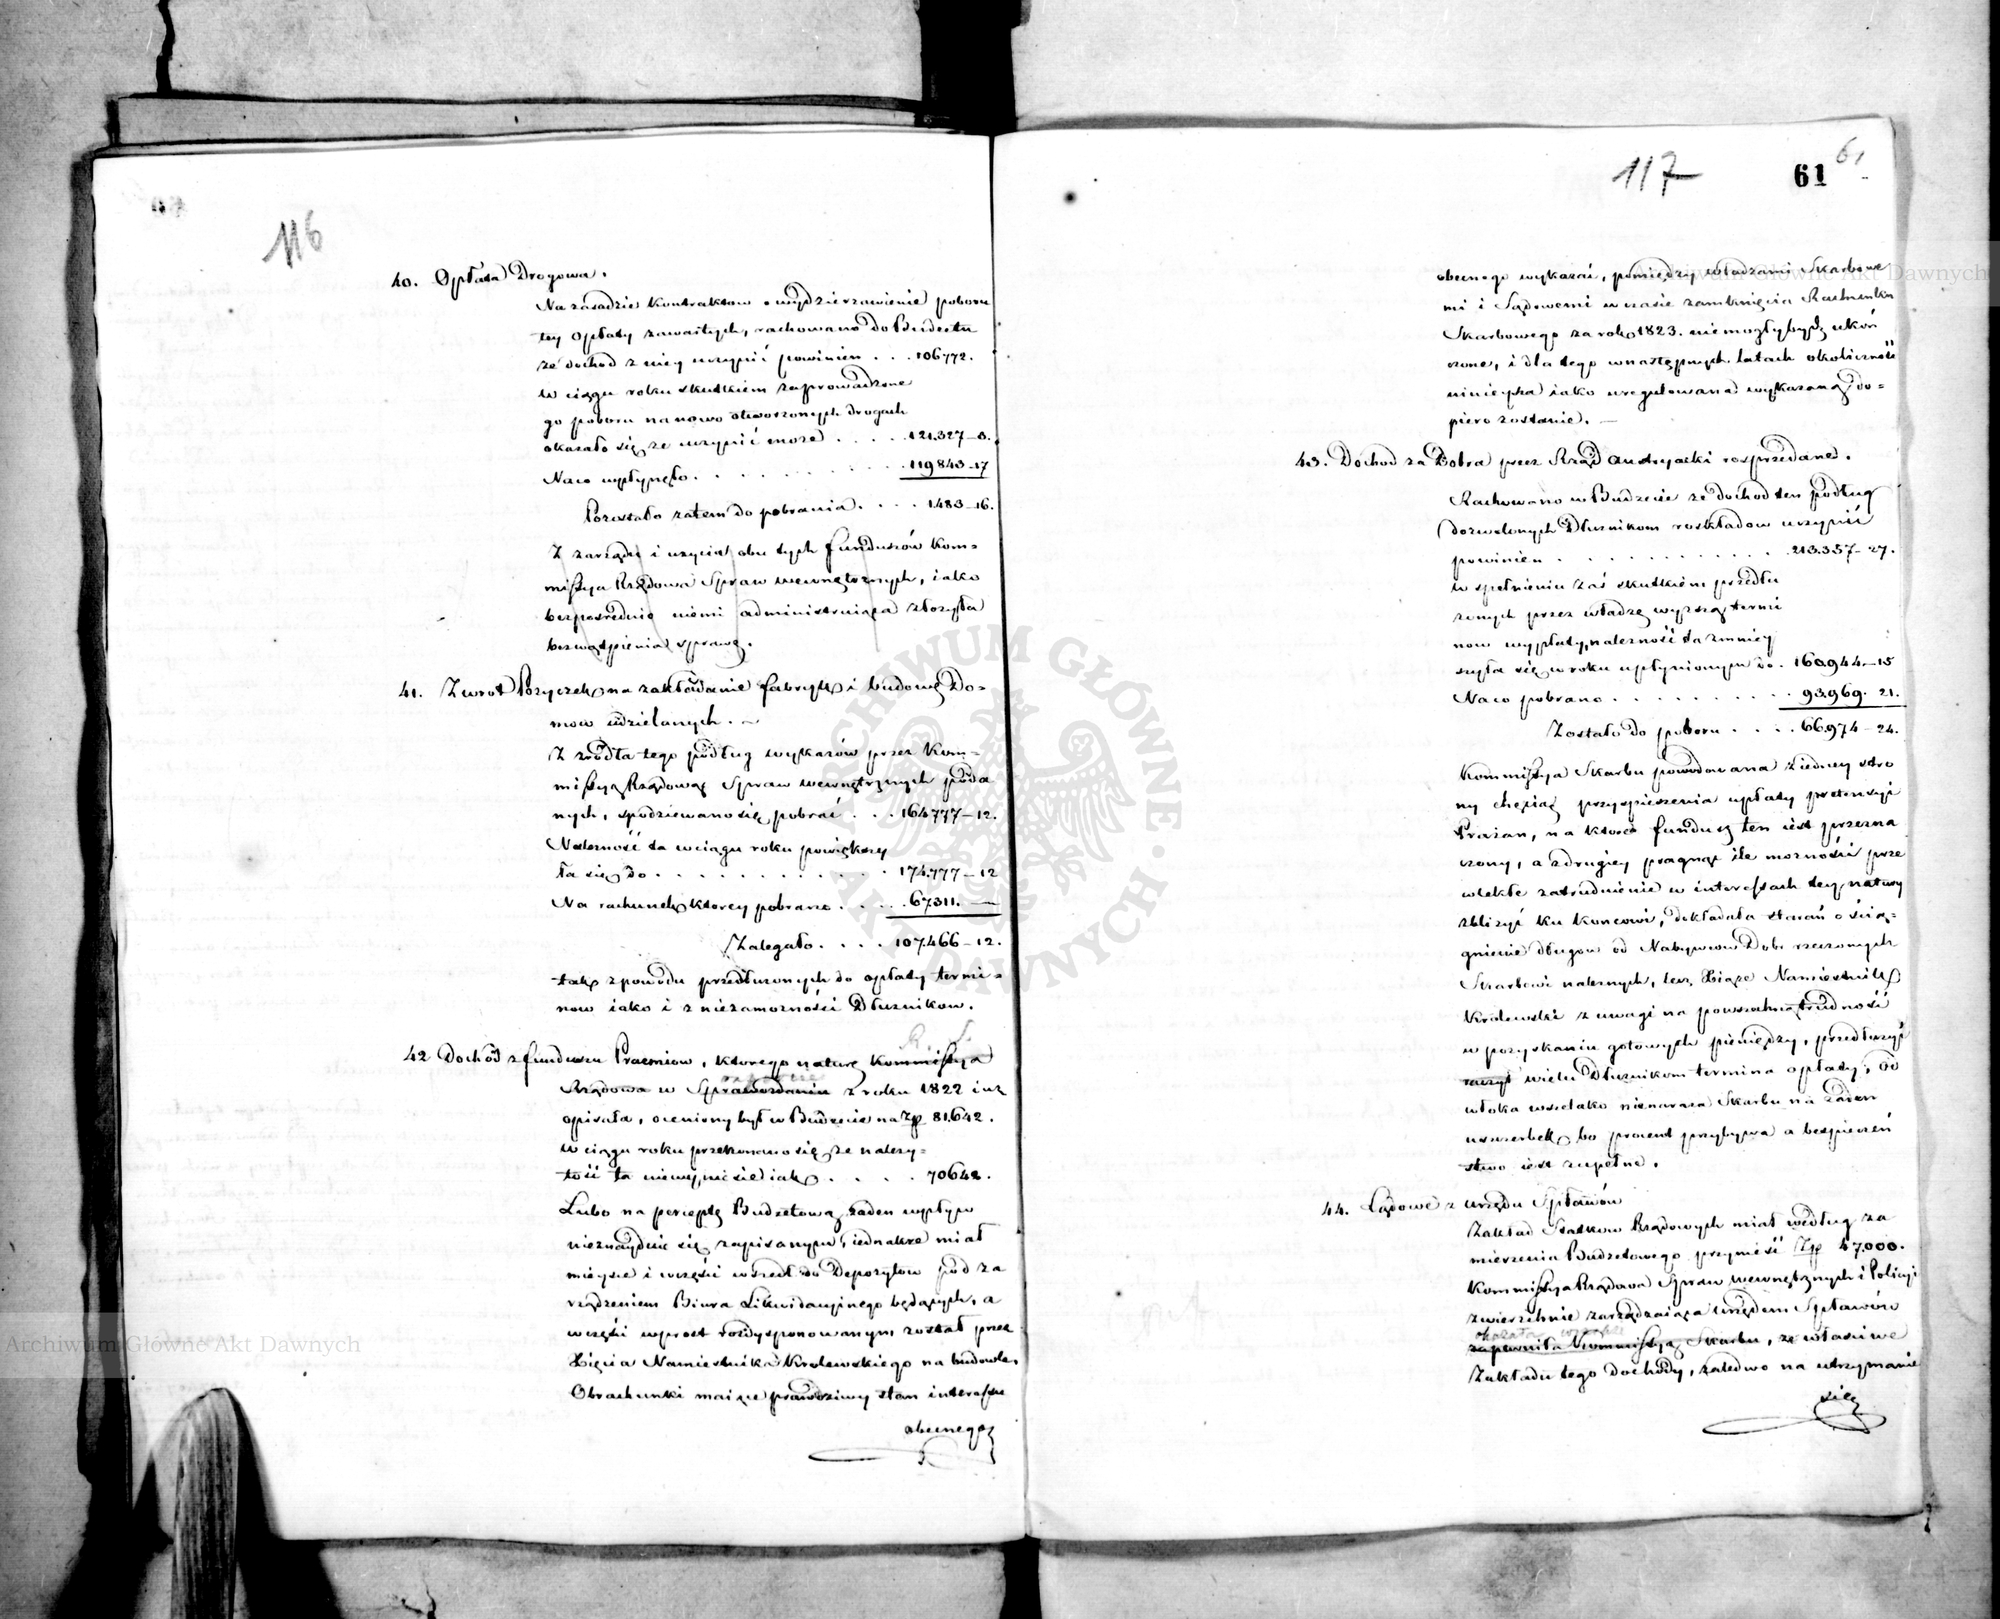 116
40. Opłata Drogowa.
Na zasadzie kontraktow o wydzierzawienie poboru
tey opłaty zawartych, rachowano do Budżetu
ze dochod z niey uczynić powinien . . . 106772.
W ciągu roku skutkiem zaprowadzone
go poboru na nowo otworzonych drogach
okazało się ze uczynić może . . . . . 121.327-3.
Na co wpłynęło . . . . . . . . . 119843-17
Pozostało zatem do pobrania . . . . 1483-16.
Z zarządu i uzycia obu tych funduszów Kom=
missya Rządowa Spraw wewnętrznych, iako
bezpośrednie niemi administruiąca złozyła
bezwątpienia sprawę.
41. Zwrot Pozyczek na zakładanie fabryk i budowę Do=
mow udzielanych. ~
Z zródła tego podług wykazów przez Kom=
missyą Rządową Spraw wewnętrznych poda
nych, spodziewano się pobrać . . . 164.777-12.
Należność ta w ciągu roku powiększy
ła się do . . . . . . . . . . . . 174.777-12
Na rachunek ktorey pobrano . . . . . 67311. —
Zalegało . . . . 107.466-12.
tak z powodu przedłuzonych do opłaty termi=
now iako i z niezamozności Dłuznikow.
42 Dochód z funduszu Praemiow, ktorego naturę Kommissya
Rządowa w Sprawozdaniu z roku 1822 iuz
opisała, oceniony był w Budzecie na Zp 81.642.
W ciągu roku przekonano się ze nalezy=
tość ta niewyniesie iak . . . . . 70642.
Lubo na perceptę Budzetową zaden wpływ
nieznayduie się zapisanym, iednakze miał
mieysce i w części wszedł do Depozytow pod za
rządzeniem Biura Likwidacyinego będących, a
w części wprost rozdysponowanym został przez
Xięcia Namiestnika Krolewskiego na budowle.
Obrachunki maiące prawdziwy stan interessu
obecnego
117
61
61
obecnego wykazać, pomiędzy władzami Skarbowe
mi i Sądowemi w czasie zamknięcia Rachunku
Skarbowego za rok 1823. niemogły bydz ukoń
czone, i dla tego w następnych latach okoliczność
ninieysza iako uregulowana wykazaną do=
piero zostanie. —
43. Dochod za Dobra przez Rząd Austryacki rozprzedane.
Rachowano w Budzecie ze dochod ten podług
dozwolonych Dłuznikom rozkładow uczynić
powinien . . . . . . . . . . . . 213.357-27.
w spełnieniu zaś skutkiem przedłu
zonych przez władzę wyzszą termi
now wypłaty, nalezność ta zmniey
szyła się w roku upłynionym do . 160944-15
Na co pobrano . . . . . . . . . . 93969. 21.
Zostało do poboru . . . . 66.974-24.
Kommissya Skarbu powodowana z iedney stro
ny chęcią przyspieszenia wpłaty pretensyi
Prazan, na ktore fundusz ten iest przezna
czony, a z drugiey pragnąc ile mozności prze
wlekłe zatrudnienie w interessach tey natury
zblizyć ku koncowi, dokładała starań o ścią=
gnienie długow od Nabywcow Dobr rzeczonych
Skarbowi naleznych, lecz Xiąze Namiestnik
Krolewski z uwagi na powszechną trudność
w pozyskaniu gotowych pieniędzy, przedłuzyć
raczył wielu Dłuznikom termina opłaty; Od
włoka wszelako nienaraza Skarbu na zaden
uszczerbek, bo procent przybywa a bezpieczeń
stwo iest zupełne.
44. Lądowe z Urzędu Spławów
Zakład Statkow Rządowych miał według za
mierzenia Budzetowego przynieść Zp 47.000.
Kommissya Rządowa Spraw wewnętrznych i Policyi
zwierzchnie zarządzaiąca Urzędem Spławów
zapewniła Kommissyą Skarbu, ze właściwe
Zakładu tego Dochody, zaledwo na utrzymanie
sięz
ARCHIWUM GŁÓWNE AKT DAWNYCH
Archiwum Główne Akt Dawnych
Archiwum Główne Akt Dawnych